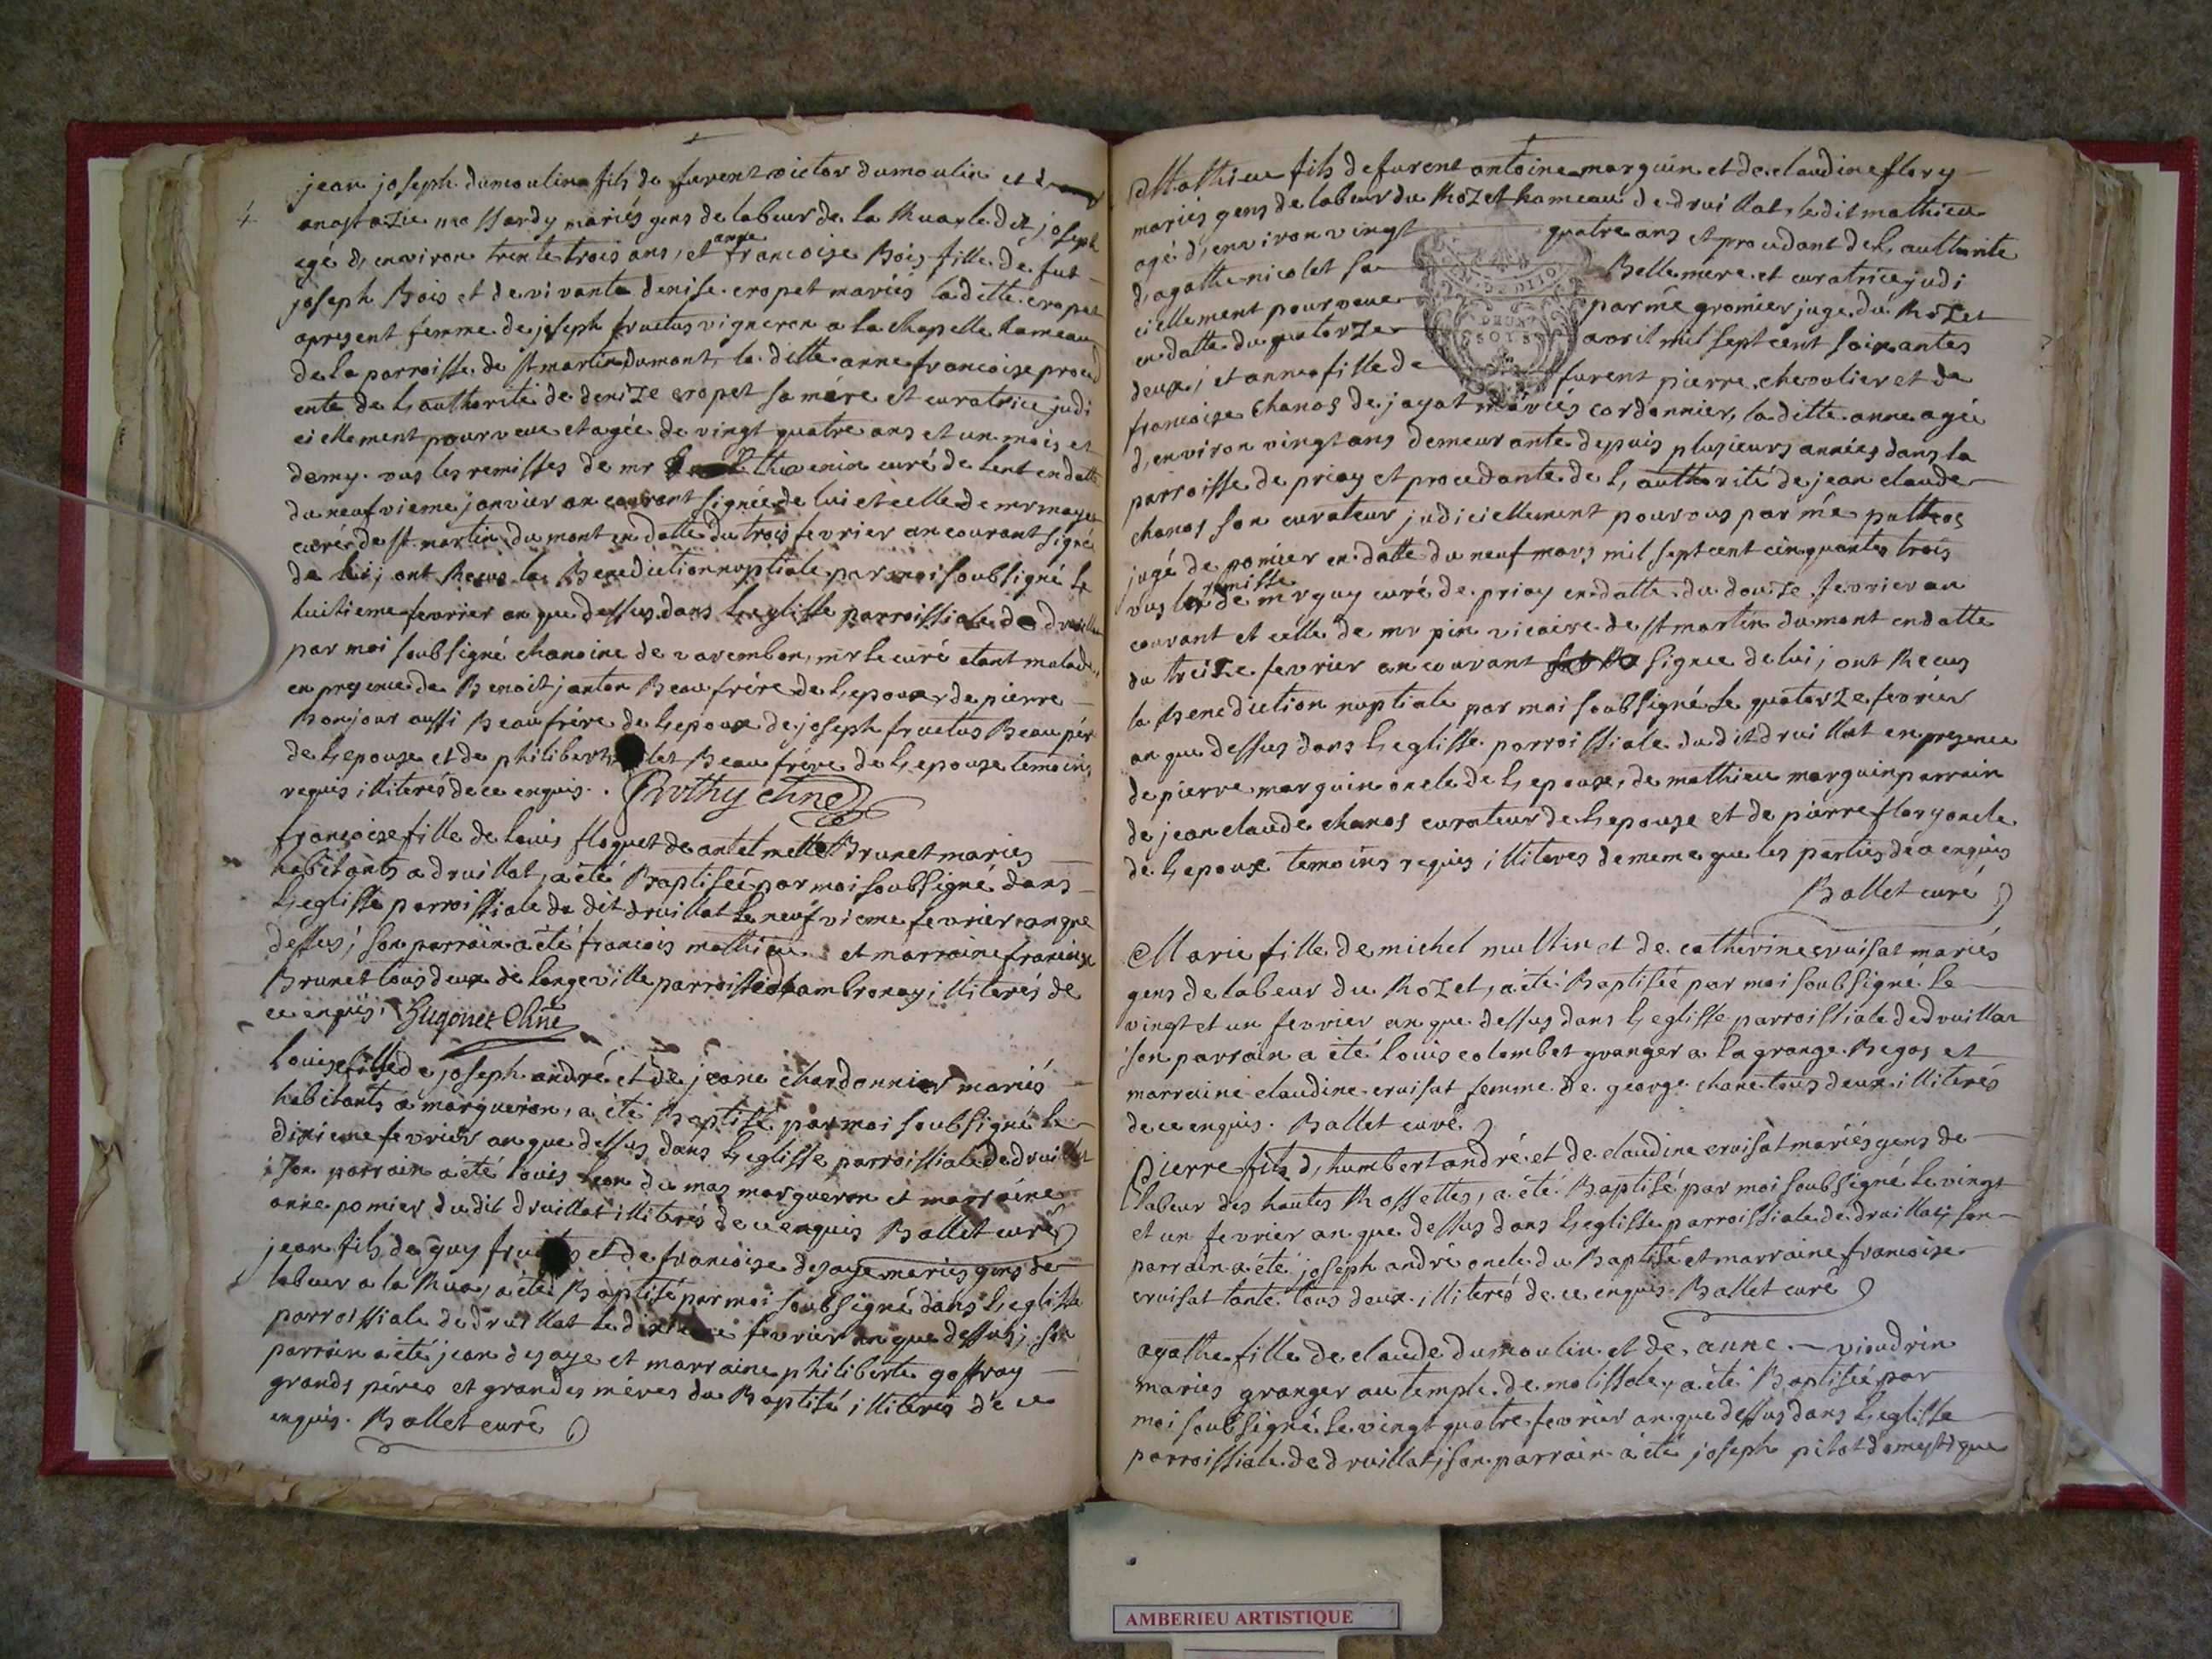 jean joseph dumoulin fils de furent victor dumoulin et d
anastazie massardy mariés gens de labeur de la Rua, le dit joseph
egé d'environ trente trois ans, et anne francoise Bois fille de fut
joseph Bois et de vivante denise cropet mariés la ditte cropet
apresent femme de joseph fructus vigneron a la chapelle hameau
de la parroisse de st martin du mont, la ditte anne francoise proced
ente de l'authorité de denize cropet sa mére et curatrice judi
ciellement pourveue et agée de vingt quatre ans et un mois et
demy. vus les remisses de mr thevenin curé de lent en datte
du neufvieme janvier an courant signée de lui et celle de mr mayet
curé de st martin du mont en datte du trois fevrier an courant signé
de lui, ont Recus la Benediction nuptiale par moi soubsigné le
huitieme fevrier an que dessus dans l'eglisse parroissiale de druillat
par moi soubsigné chanoine de varembon, mr le curé etant malade,
en presence de Benoit janton Beaufrére de l'epoux de pierre
Bonjour aussi Beaufrére de l'epoux de joseph fructus Beaupér
de l'epouse et de philibert let Beaufrére de l'epouse temoins
requis illiterés de ce enquis. Brothy chne
francoise fille de louis floquet de antelmette Brunet mariés
habitants a druillat, a été Baptiséé par moi soubsigné dans
l'eglisse parroissiale de dit druillat le neufvieme fevrier an que
dessus; son parrain a été francois mathieu et marraine francoise
Brunet tous deux de longeville parroisse d'ambronay illiterés de
ce enquis. Hugonet Chne
Louise fille de joseph andré et de jeane chardonnier mariés
habitants a margueron, a été Baptisé par moi soubsigné le
dixieme fevrier an que dessus dans l'eglisse parroissiale de druillat
son parrain a été louis leon du mas margueron et marraine
anne pomier du dit druillat illiterés de ce enquis Ballet curé
jean fils de guy fructus et de francoise desaye mariés gens de
labeur a la Rua, a été Baptisé par moi soubsigné dans l'eglisse
parroissiale de druillat le dixieme fevrier an que dessus; son
parrain a été jean desaye et marraine philiberte goffray
grands péres et grandes méres du Baptisé illiterés de ce
enquis. Ballet curé
Mathieu fils de furent antoine marguin et de claudine flory
mariés gens de labeur du Rozet hameau de druillat, le dit mathieu
agé d'environ vingt quatre ans et procedant de l'authorité
d'agathe nicolet sa Belle mere et curatrice judi
ciellement pourveue par me gromier juge du Rozet
en datte du quatorze avril mil sept cent soixantes
deux; et anne fille de furent pierre chevalier et de
francoise chanas de jayat mariés cordonnier, la ditte anne agée
d'environ vingt ans demeurante depuis plusieurs années dans la
parroisse de priay et procedante de l'authorité de jean claude
chanas son curateur judiciellement pourvus par me putteos
jugé de pomier en datte du neuf mars mil sept cent cinquantes trois
vus la remisse de mr guy curé de priay en datte du douze fevrier an
courant et celle de mr pin vicaire de st martin du mont en datte
du treize fevrier an courant signee de lui, ont Recus
la Benediction nuptiale par moi soubsigné le quatorze fevrier
an que dessus dans l'eglisse parroissiale du dit druillat en presence
de pierre marguin oncle de l'epoux, de mathieu marguin parrain
de jean claude chanas curateur de l'epouse et de pierre flory oncle
de l'epoux temoins requis illiteres de meme que les parties de ce enquis
Ballet curé
Marie fille de michel multin et de catherine cruisat mariés
gens de labeur du Rozet, a été Baptisée par moi soubsigné le
vingt et un fevrier an que dessus dans l'eglisse parroissiale de druillat
son parrain a été louis colombet granger a la grange Begos et
marraine claudine cruisat femme de george chane tous deux illiterés
de ce enquis. Ballet curé
Pierre fils d'humbert andré et de claudine cruisat mariés gens de
labeur des hautes Rossettes, a été Baptisé par moi soubsigné le vingt
et un fevrier an que dessus dans l'eglisse parroissiale de druillat; son
parrain a été joseph andré oncle du Baptisé et marraine francoise
cruisat tante tous deux illiterés de ce enquis. Ballet curé
agathe fille de claude dumoulin et de anne vieudrin
mariés granger au temple de molissole, a été Baptiséé par
moi soubsigné le vingt quatre fevrier an que dessus dans l'eglisse
parroissiale de druillat, son parrain a été joseph pilat domestique
AMBERIEU ARTISTIQUE